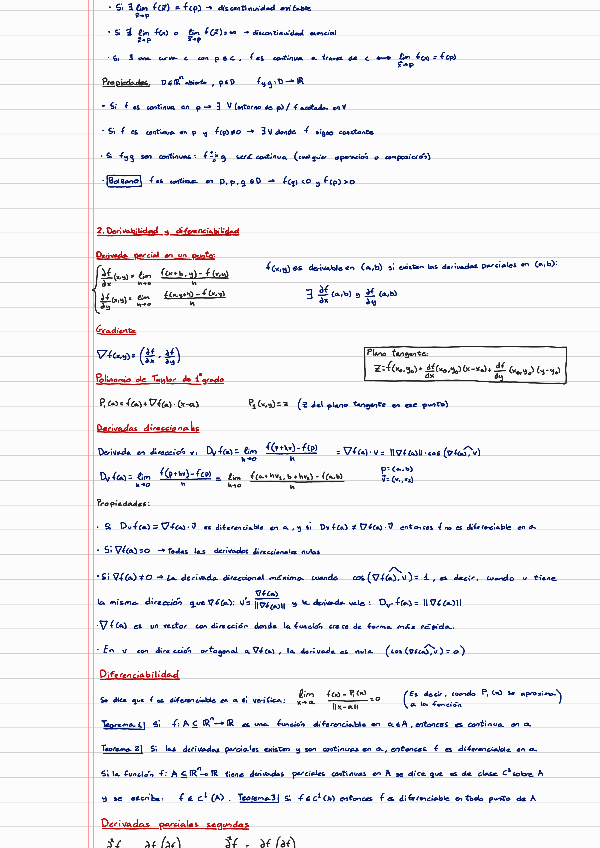 · Si ∃ lim f(x̄) = f(p) → discontinuidad evitable
x̄→p
· Si ∄ lim f(x) o lim f(x̄)=∞ → discontinuidad esencial
x̄→p x̄→p
· Si ∃ una curva c con p∈c, f es continua a traves de c ⟷ lim f(x) = f(p)
x̄→p
Propiedades. D⊆ℝⁿ abierto, p∈D f y g: D→ℝ
- Si f es continua en p → ∃ V (entorno de p) / f acotada en V
· Si f es continua en p y f(p)≠0 → ∃ V donde f signo constante
· Si f y g son continuas: f g será continua (cualquier operación o composición)
· Bolzano f es continua en D, p, q ∈ D → f(q)<0 y f(p)>0
2. Derivabilidad y diferenciabilidad
Derivada parcial en un punto:
∂f/∂x (x,y) = lim h→0 (f(x+h, y) - f(x,y))/h f(x,y) es derivable en (a,b) si existen las derivadas parciales en (a,b):
∂f/∂y (x,y) = lim h→0 (f(x,y+h) - f(x,y))/h ∃ ∂f/∂x (a,b) y ∂f/∂y (a,b)
Gradiente
∇f(x,y) = (∂f/∂x, ∂f/∂y)
Plano tangente:
z = f(x₀,y₀) + df/dx (x₀,y₀) (x-x₀) + df/dy (x₀,y₀) (y-y₀)
Polinomio de Taylor de 1º grado
P₁(x) = f(a) + ∇f(a) · (x-a) P₁(x,y) = z (z del plano tangente en ese punto)
Derivadas direccionales
Derivada en dirección v: Dᵥf(a) = lim h→0 (f(p+hv) - f(p))/h = ∇f(a) · v = ||∇f(a)|| · cos (∇f(a), v)
Dᵥf(a) = lim h→0 (f(p+hv) - f(p))/h = lim h→0 (f(a+hv₁, b+hv₂) - f(a,b))/h p=(a,b)
v̄=(v₁,v₂)
Propiedades:
· Si Dᵥf(a) = ∇f(a) · v̄ es diferenciable en a, y si Dᵥf(a) ≠ ∇f(a) · v̄ entonces f no es diferenciable en a
· Si ∇f(a)=0 → Todas las derivadas direccionales nulas
· Si ∇f(a) ≠ 0 → La derivada direccional máxima cuando cos(∇f(a), v) = 1, es decir, cuando v tiene
la misma dirección que ∇f(a): v = ∇f(a)/||∇f(a)|| y la derivada vale: Dᵥf(a) = ||∇f(a)||
· ∇f(a) es un vector con dirección donde la función crece de forma más rápida.
· En v con dirección ortogonal a ∇f(a), la derivada es nula (cos(∇f(a), v) = 0)
Diferenciabilidad
Se dice que f es diferenciable en a si verifica: lim x→a (f(x) - P₁(x))/||x-a|| = 0 (Es decir, cuando P₁(x) se aproxima
a la función)
Teorema 1| Si f: A⊆ℝⁿ→ℝ es una función diferenciable en a∈A, entonces es continua en a.
Teorema 2| Si las derivadas parciales existen y son continuas en a, entonces f es diferenciable en a.
Si la función f: A⊆ℝⁿ→ℝ tiene derivadas parciales continuas en A se dice que es de clase C¹ sobre A
y se escribe: f∈C¹(A). Teorema 3| Si f∈C¹(A) entonces f es diferenciable en todo punto de A
Derivadas parciales segundas